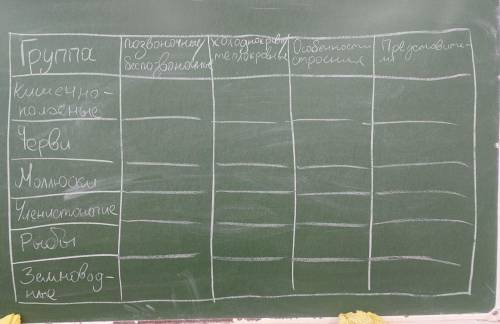 Группа
позвоночные/
беспозвоночные
холоднокров/
теплокровные
Особенности
строения
Представите-
ли
Кишечно-
полосные
Черви
Моллюски
Членистоногие
Рыбы
Земновод-
ные